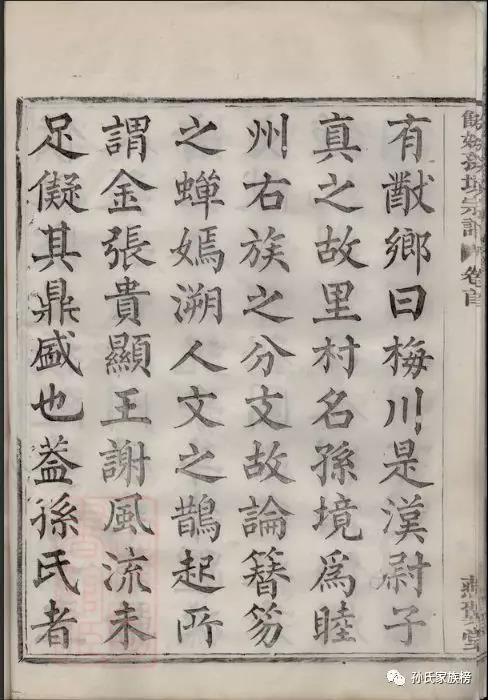 餘姚孫境宗譜 卷首
燕翼堂
有猷鄉曰梅川是漢尉子
真之故里村名孫境爲睦
州右族之分文故論簪笏
之蟬嫣溯人文之鵲起所
謂金張貴顯王謝風流未
足儗其鼎盛也葢孫氏者
孙氏家族榜